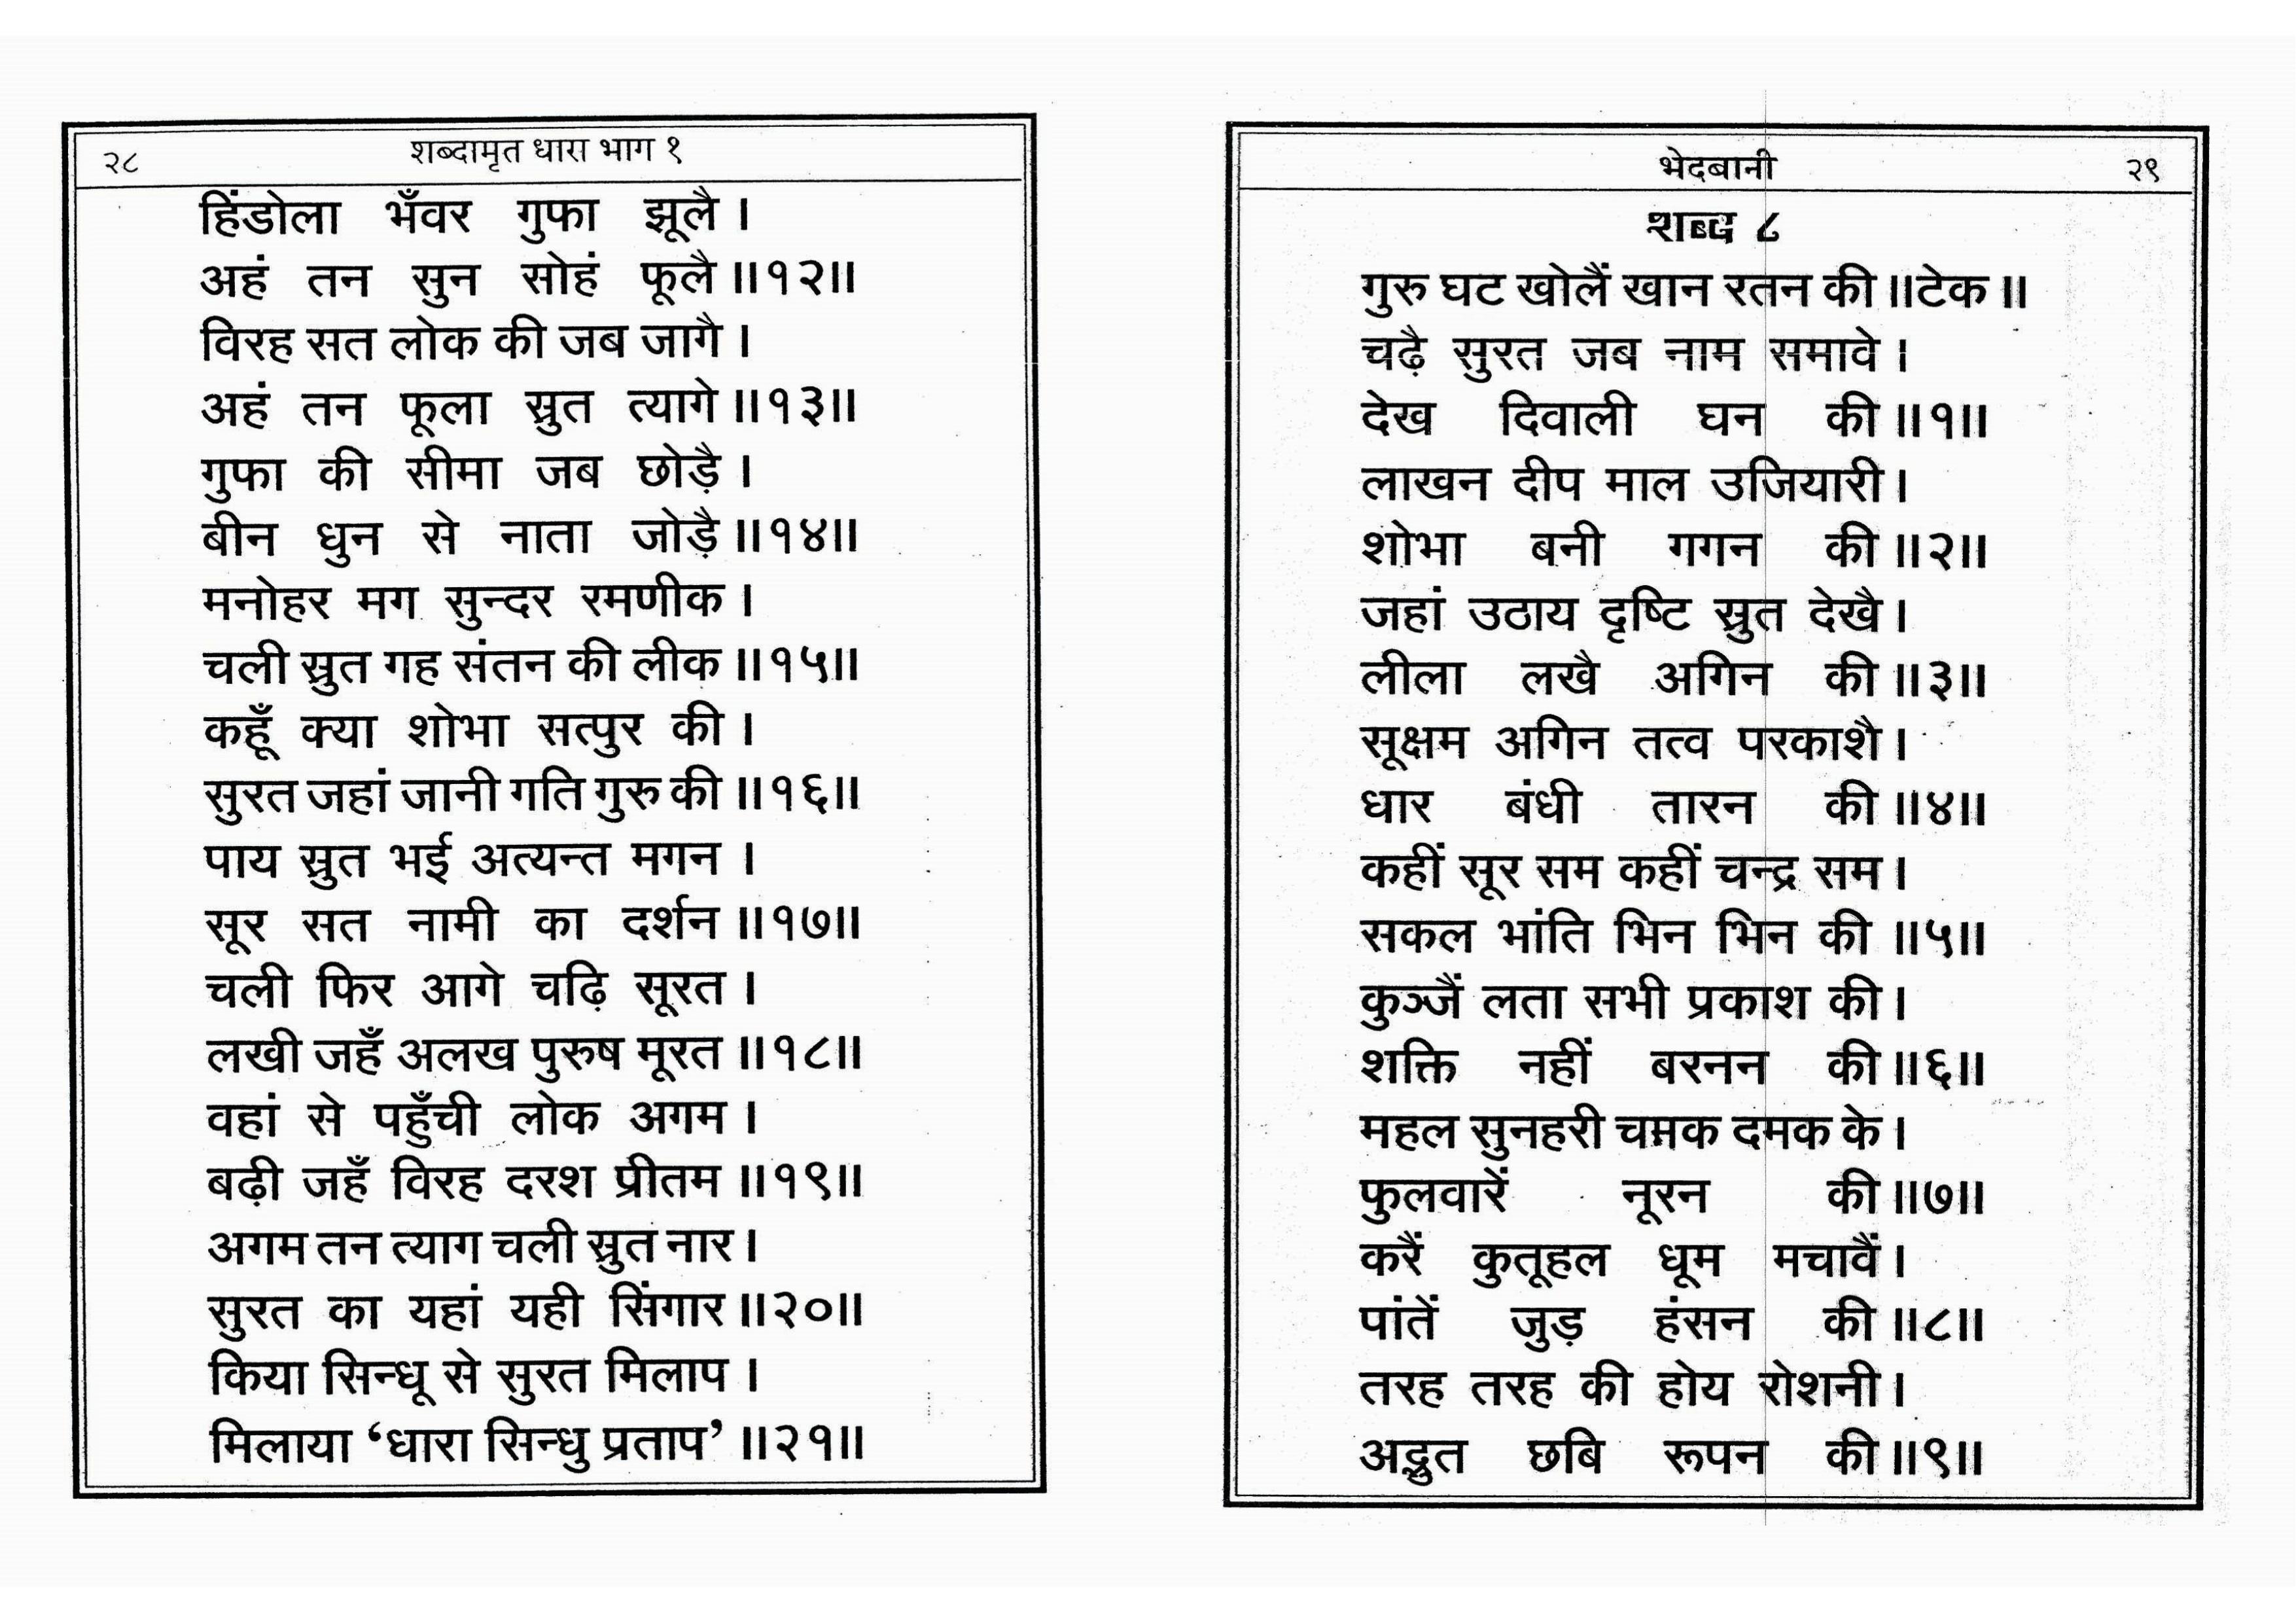 २८
शब्दामृत धारा भाग १
हिंडोला भँवर गुफा झूलै ।
अहं तन सुन सोहं फूलै ॥१२॥
विरह सत लोक की जब जागै ।
अहं तन फूला स्रुत त्यागे ॥१३॥
गुफा की सीमा जब छोड़ै ।
बीन धुन से नाता जोड़ै ॥१४॥
मनोहर मग सुन्दर रमणीक ।
चली स्रुत गह संतन की लीक ॥१५॥
कहूँ क्या शोभा सत्पुर की ।
सुरत जहां जानी गति गुरु की ॥१६॥
पाय स्रुत भई अत्यन्त मगन ।
सूर सत नामी का दर्शन ॥१७॥
चली फिर आगे चढ़ि सूरत ।
लखी जहँ अलख पुरुष मूरत ॥१८॥
वहां से पहुँची लोक अगम ।
बढ़ी जहँ विरह दरश प्रीतम ॥१९॥
अगम तन त्याग चली स्रुत नार ।
सुरत का यहां यही सिंगार ॥२०॥
किया सिन्धू से सुरत मिलाप ।
मिलाया ‘धारा सिन्धु प्रताप’ ॥२१॥
भेदबानी
२९
शब्द ८
गुरु घट खोलैं खान रतन की ॥टेक॥
चढ़ै सुरत जब नाम समावे ।
देख दिवाली घन की ॥१॥
लाखन दीप माल उजियारी ।
शोभा बनी गगन की ॥२॥
जहां उठाय दृष्टि स्रुत देखै ।
लीला लखै अगिन की ॥३॥
सूक्षम अगिन तत्व परकाशै ।
धार बंधी तारन की ॥४॥
कहीं सूर सम कहीं चन्द्र सम ।
सकल भांति भिन भिन की ॥५॥
कुञ्जैं लता सभी प्रकाश की ।
शक्ति नहीं बरनन की ॥६॥
महल सुनहरी चमक दमक के ।
फुलवारें नूरन की ॥७॥
करैं कुतूहल धूम मचावैं ।
पांतें जुड़ हंसन की ॥८॥
तरह तरह की होय रोशनी ।
अद्भुत छबि रूपन की ॥९॥